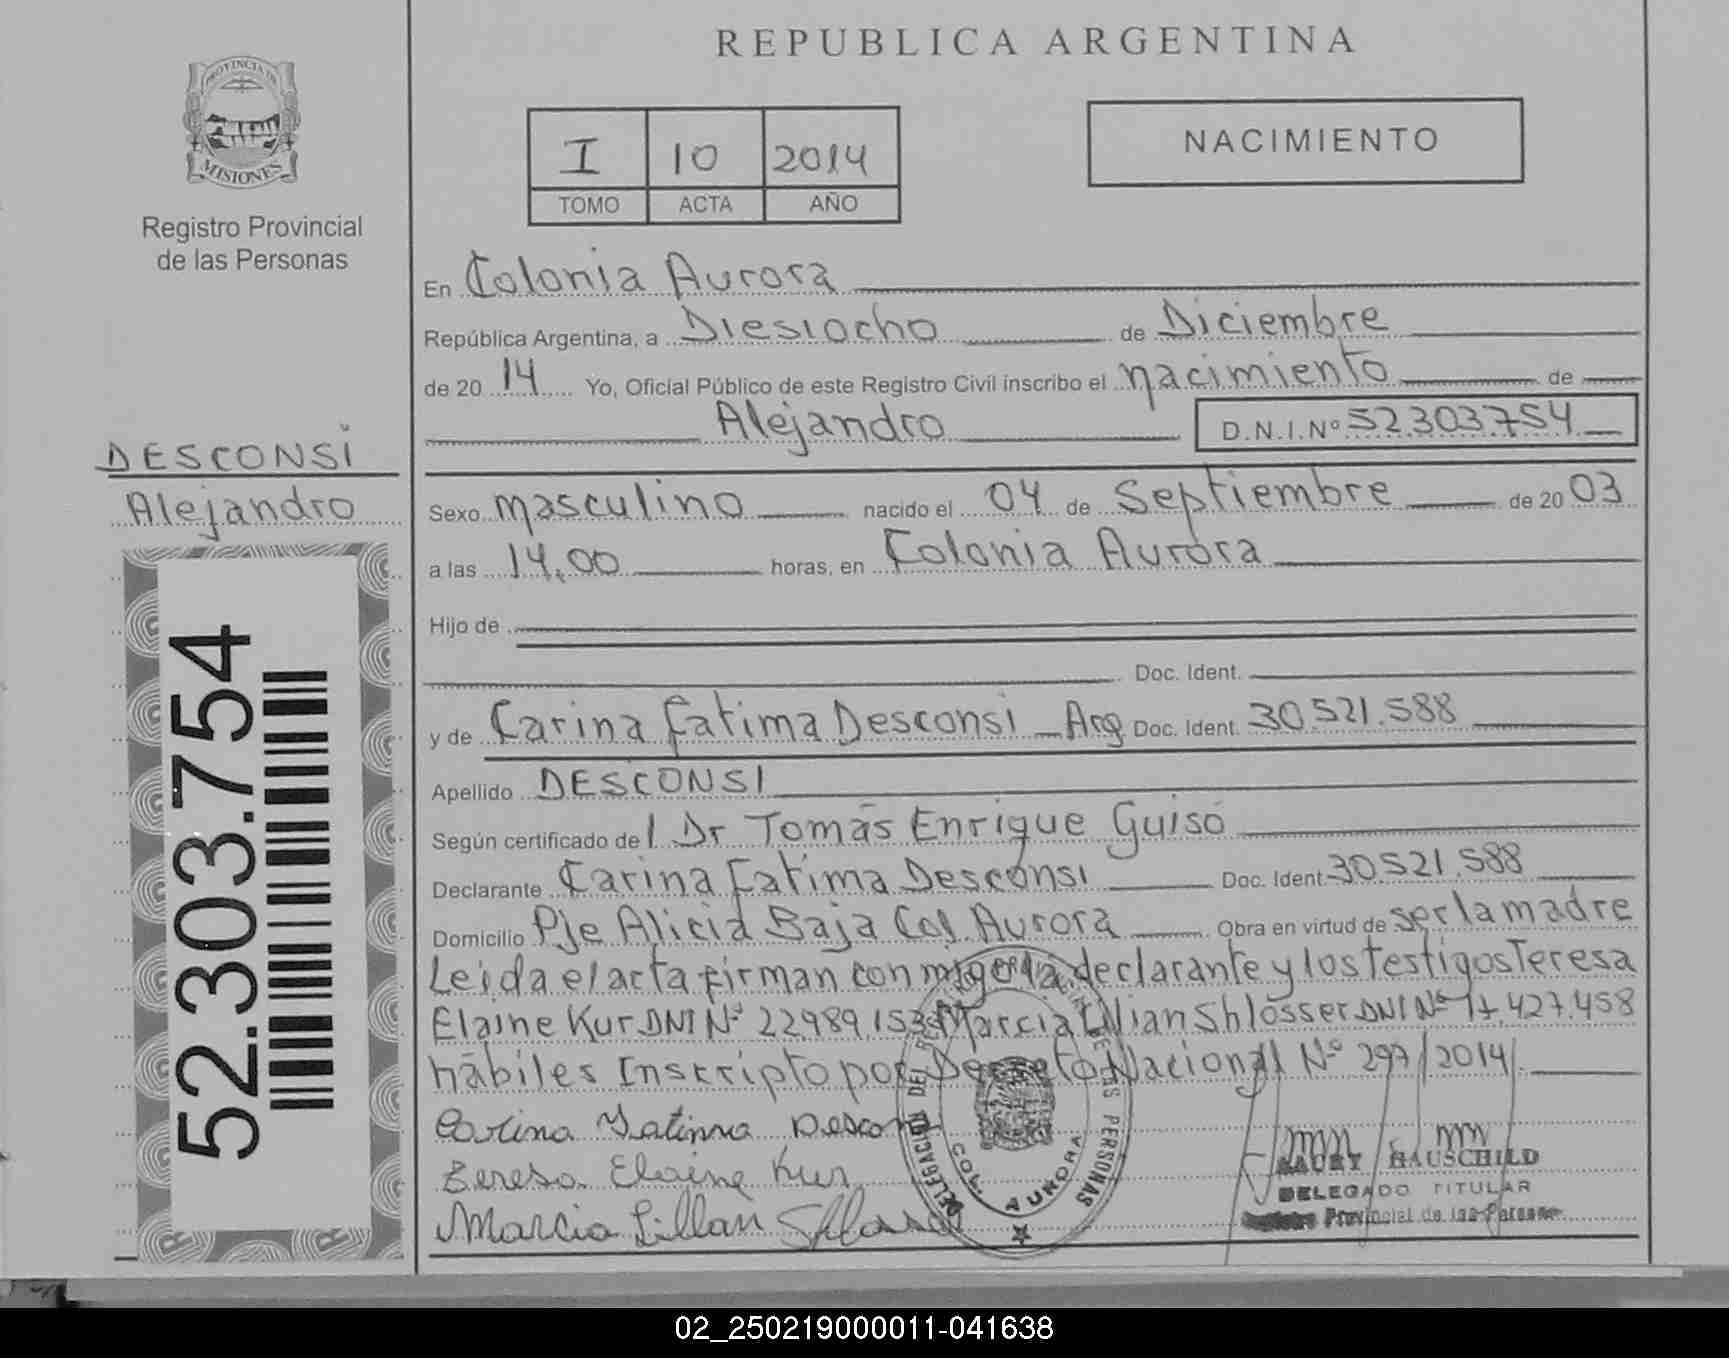 REPUBLICA ARGENTINA
PROVINCIA DE
MISIONES
Registro Provincial
de las Personas
I 10 2014
TOMO ACTA AÑO
NACIMIENTO
En Colonia Aurora
República Argentina, a Diesiocho de Diciembre
de 20 14 Yo, Oficial Público de este Registro Civil inscribo el nacimiento de
Alejandro D.N.I.Nº 52.303.754
DESCONSI
Alejandro
52.303.754
Sexo masculino nacido el 04 de Septiembre de 20 03
a las 14,00 horas, en Colonia Aurora
Hijo de
Doc. Ident.
y de Carina Fatima Desconsi Arg Doc. Ident. 30.521.588
Apellido DESCONSI
Según certificado del Dr Tomás Enrique Guisó
Declarante Carina Fatima Desconsi Doc. Ident. 30.521.588
Domicilio Pje Alicia Baja Col Aurora Obra en virtud de ser la madre
Leida el acta firman con migo la declarante y los testigos Teresa
Elaine Kur DNI Nº 22.989.153 Marcia Lilian Shlosser DNI Nº 17.427.458
hábiles Inscripto por Decreto Nacional Nº 297/2014
Carina Fatima Descon
Teresa Elaine Kur
Marcia Lillan
DELEGACION DEL PERSONAS
COL. AURORA
HAUSCHILD
DELEGADO TITULAR
Provincial de las Personas
02_250219000011-041638